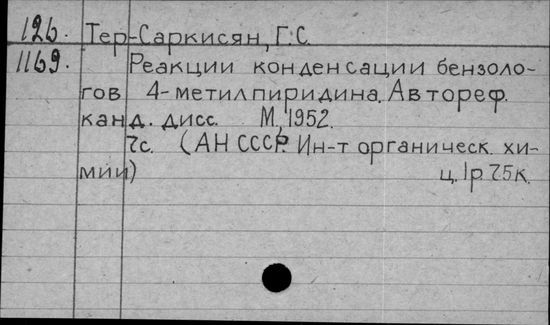 126. Тер-Саркисян, Г.С.
1169. Реакции конденсации бензоло-
гов 4-метилпиридина. Автореф.
канд. дисс. М, 1952.
7с. (АН СССР. Ин-т органическ. хи-
мии) ц. 1р. 75к.